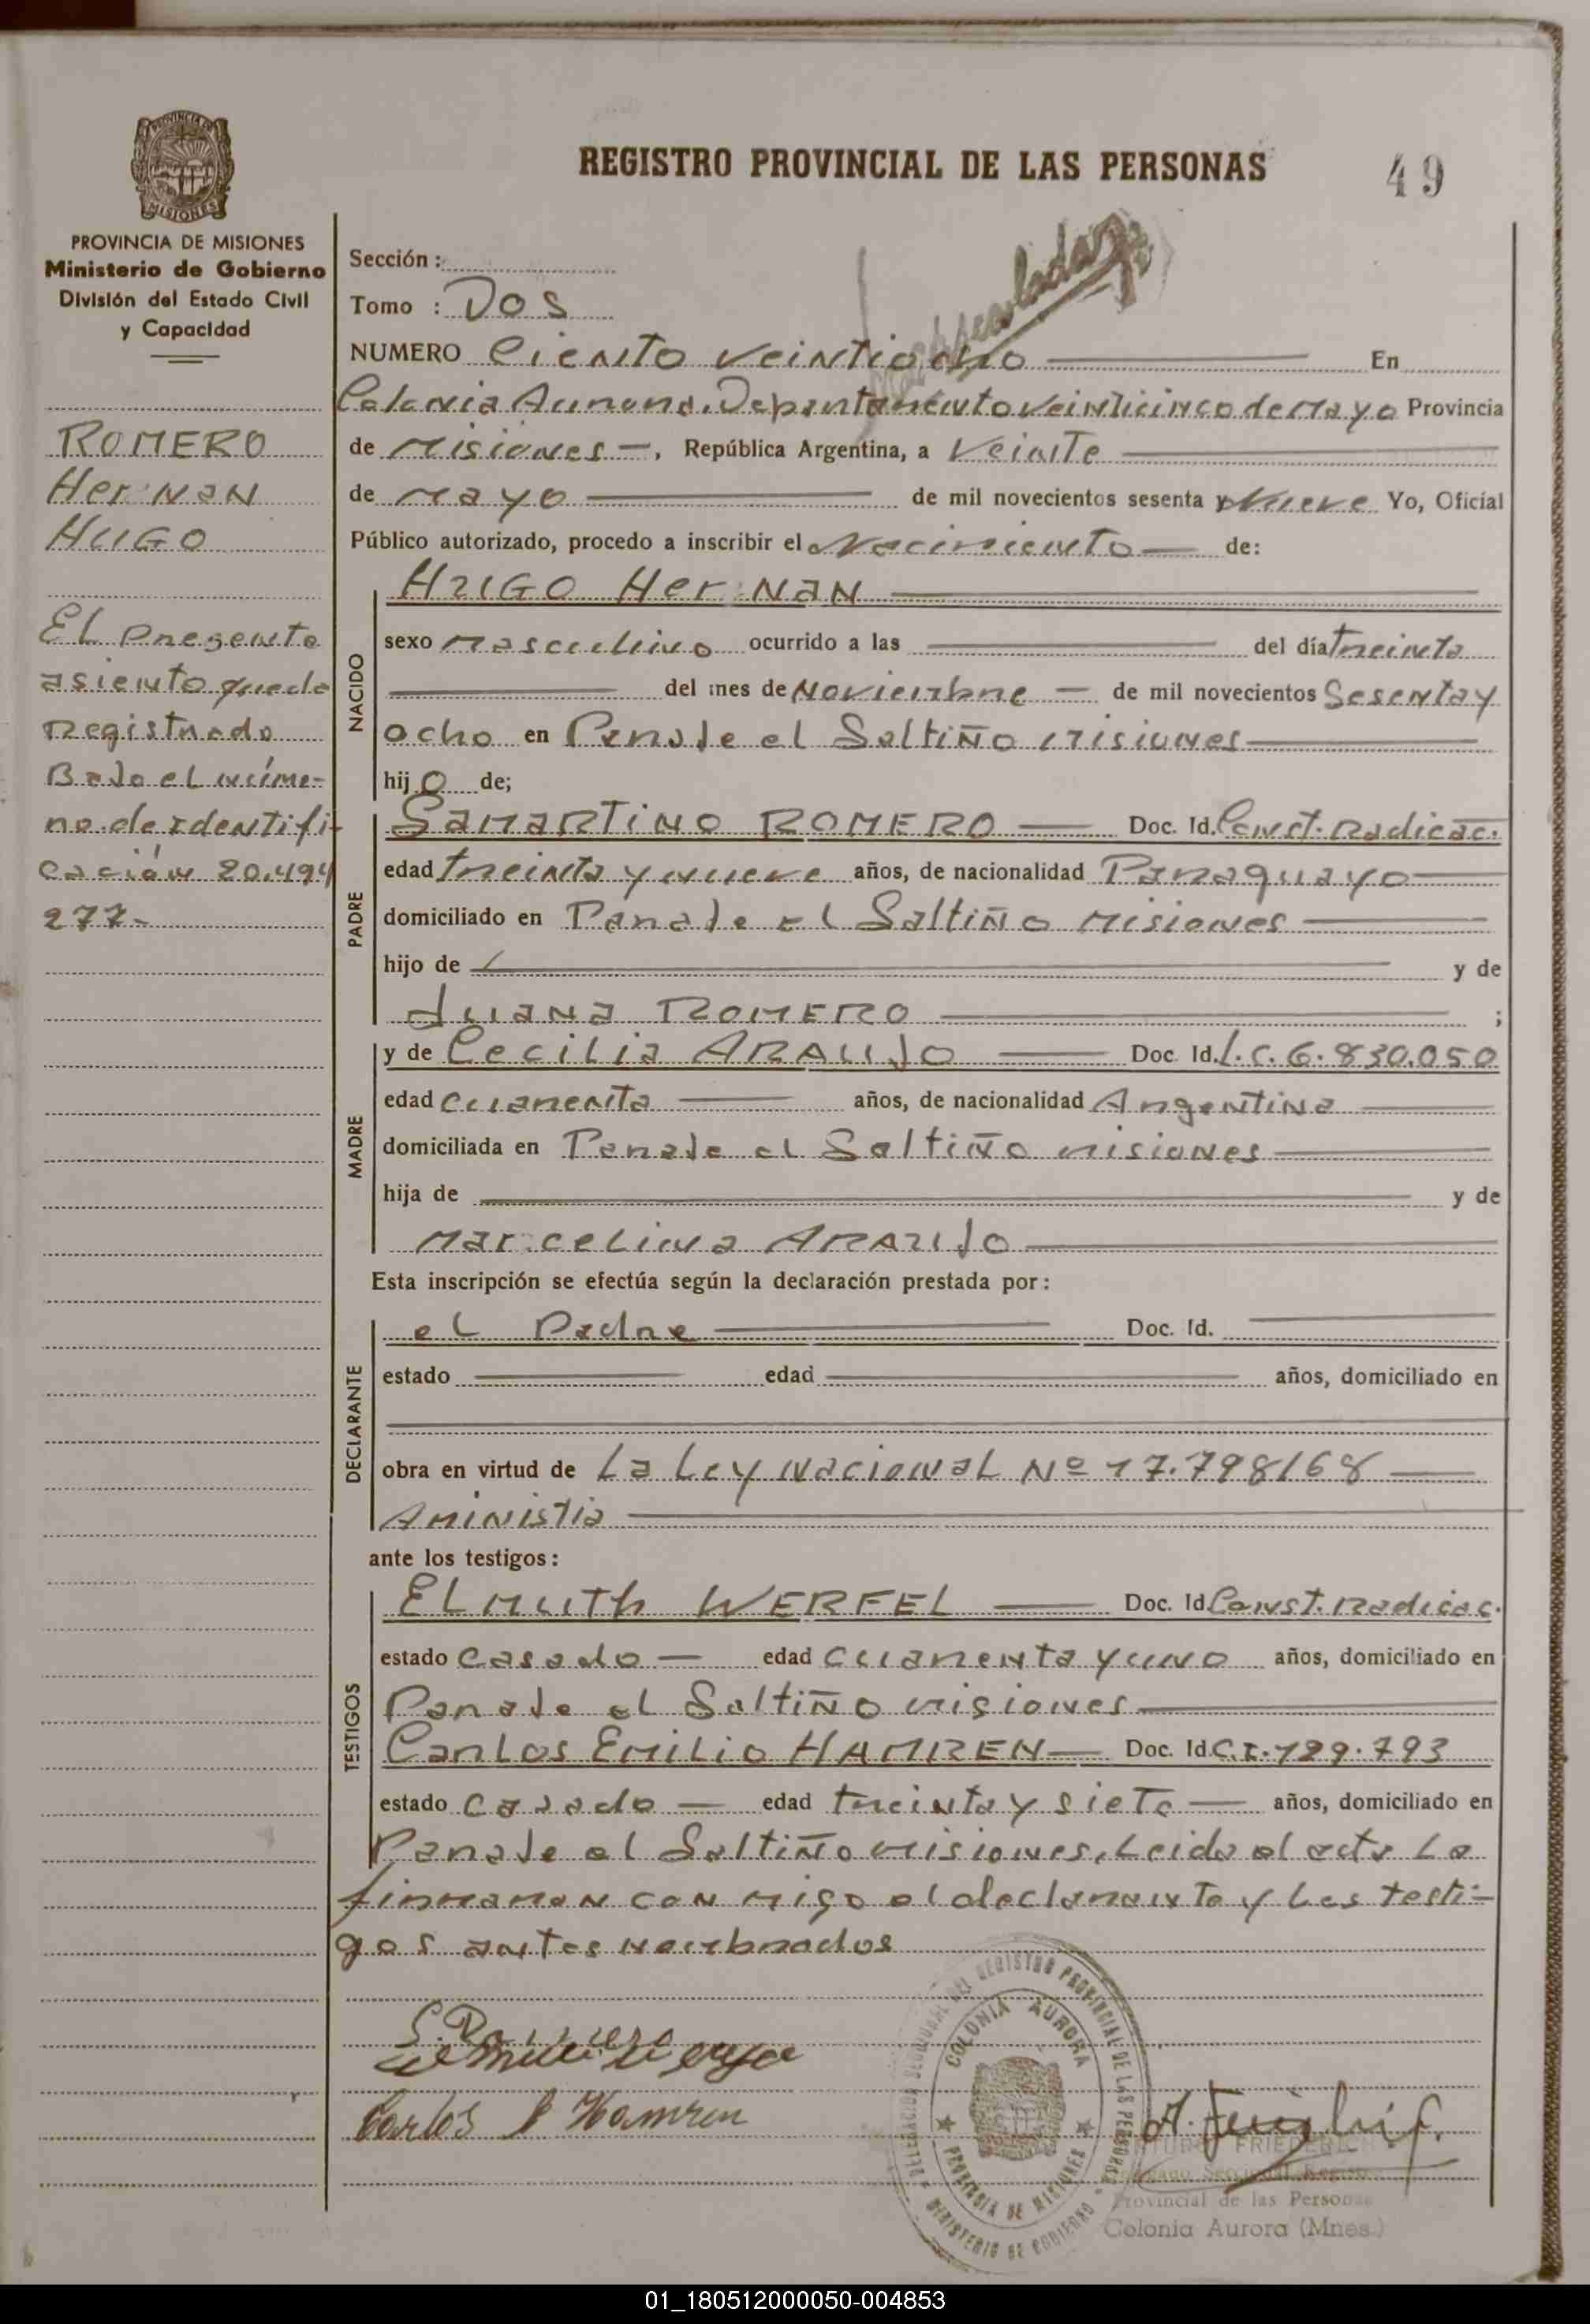 REGISTRO PROVINCIAL DE LAS PERSONAS
49
PROVINCIA DE MISIONES
MISIONES
PROVINCIA DE MISIONES
Ministerio de Gobierno
División del Estado Civil
y Capacidad
ROMERO
HerNaN
HUGO
El presente
asiento queda
registrado
Bajo el núme-
ro de identifi-
cación 20.494
277-
Sección :
Tomo : DOS
NUMERO Ciento veintiocho En
Colonia Aurora, Departamento veinticinco de Mayo Provincia
de Misiones -, República Argentina, a Veinte
de Mayo de mil novecientos sesenta y Nueve Yo, Oficial
Público autorizado, procedo a inscribir el Nacimiento de:
HUGO HerNaN
NACIDO
sexo Masculino ocurrido a las del día treinta
del mes de Noviembre - de mil novecientos Sesenta y
ocho en Paraje el Saltiño Misiones
hij o de;
PADRE
SaMaRTiNO ROMERO Doc. Id. Const. Radicac.
edad treinta y nueve años, de nacionalidad Paraguayo
domiciliado en Paraje el Saltiño Misiones
hijo de y de
Juana ROMERO ;
MADRE
y de Cecilia ARAUJO Doc. Id. L.C. 6.830.050
edad cuarenta años, de nacionalidad Argentina
domiciliada en Paraje el Saltiño Misiones
hija de y de
Marcelina ARAUJO
Esta inscripción se efectúa según la declaración prestada por:
DECLARANTE
el Padre Doc. Id.
estado edad años, domiciliado en
obra en virtud de La Ley Nacional Nº 17.798/68
Aministia
ante los testigos:
TESTIGOS
ELMUTh WERFEL Doc. Id Const. Radicac.
estado casado - edad cuarenta y uno años, domiciliado en
Paraje el Saltiño Misiones
Carlos Emilio HAMREN Doc. Id. C.I. 129.793
estado casado - edad treinta y siete años, domiciliado en
Paraje el Saltiño Misiones, Leida el acta La
firmaran con migo el declarante y Los testi-
gos antes nombrados
S. Romero
Carlos E Hamren
DELEGACION SECCIONAL DEL REGISTRO PROVINCIAL DE LAS PERSONAS
COLONIA AURORA
PROVINCIA DE MISIONES
MINISTERIO DE GOBIERNO
FRIEDERICH
Provincial de las Personas
Colonia Aurora (Mnes.)
01_180512000050-004853